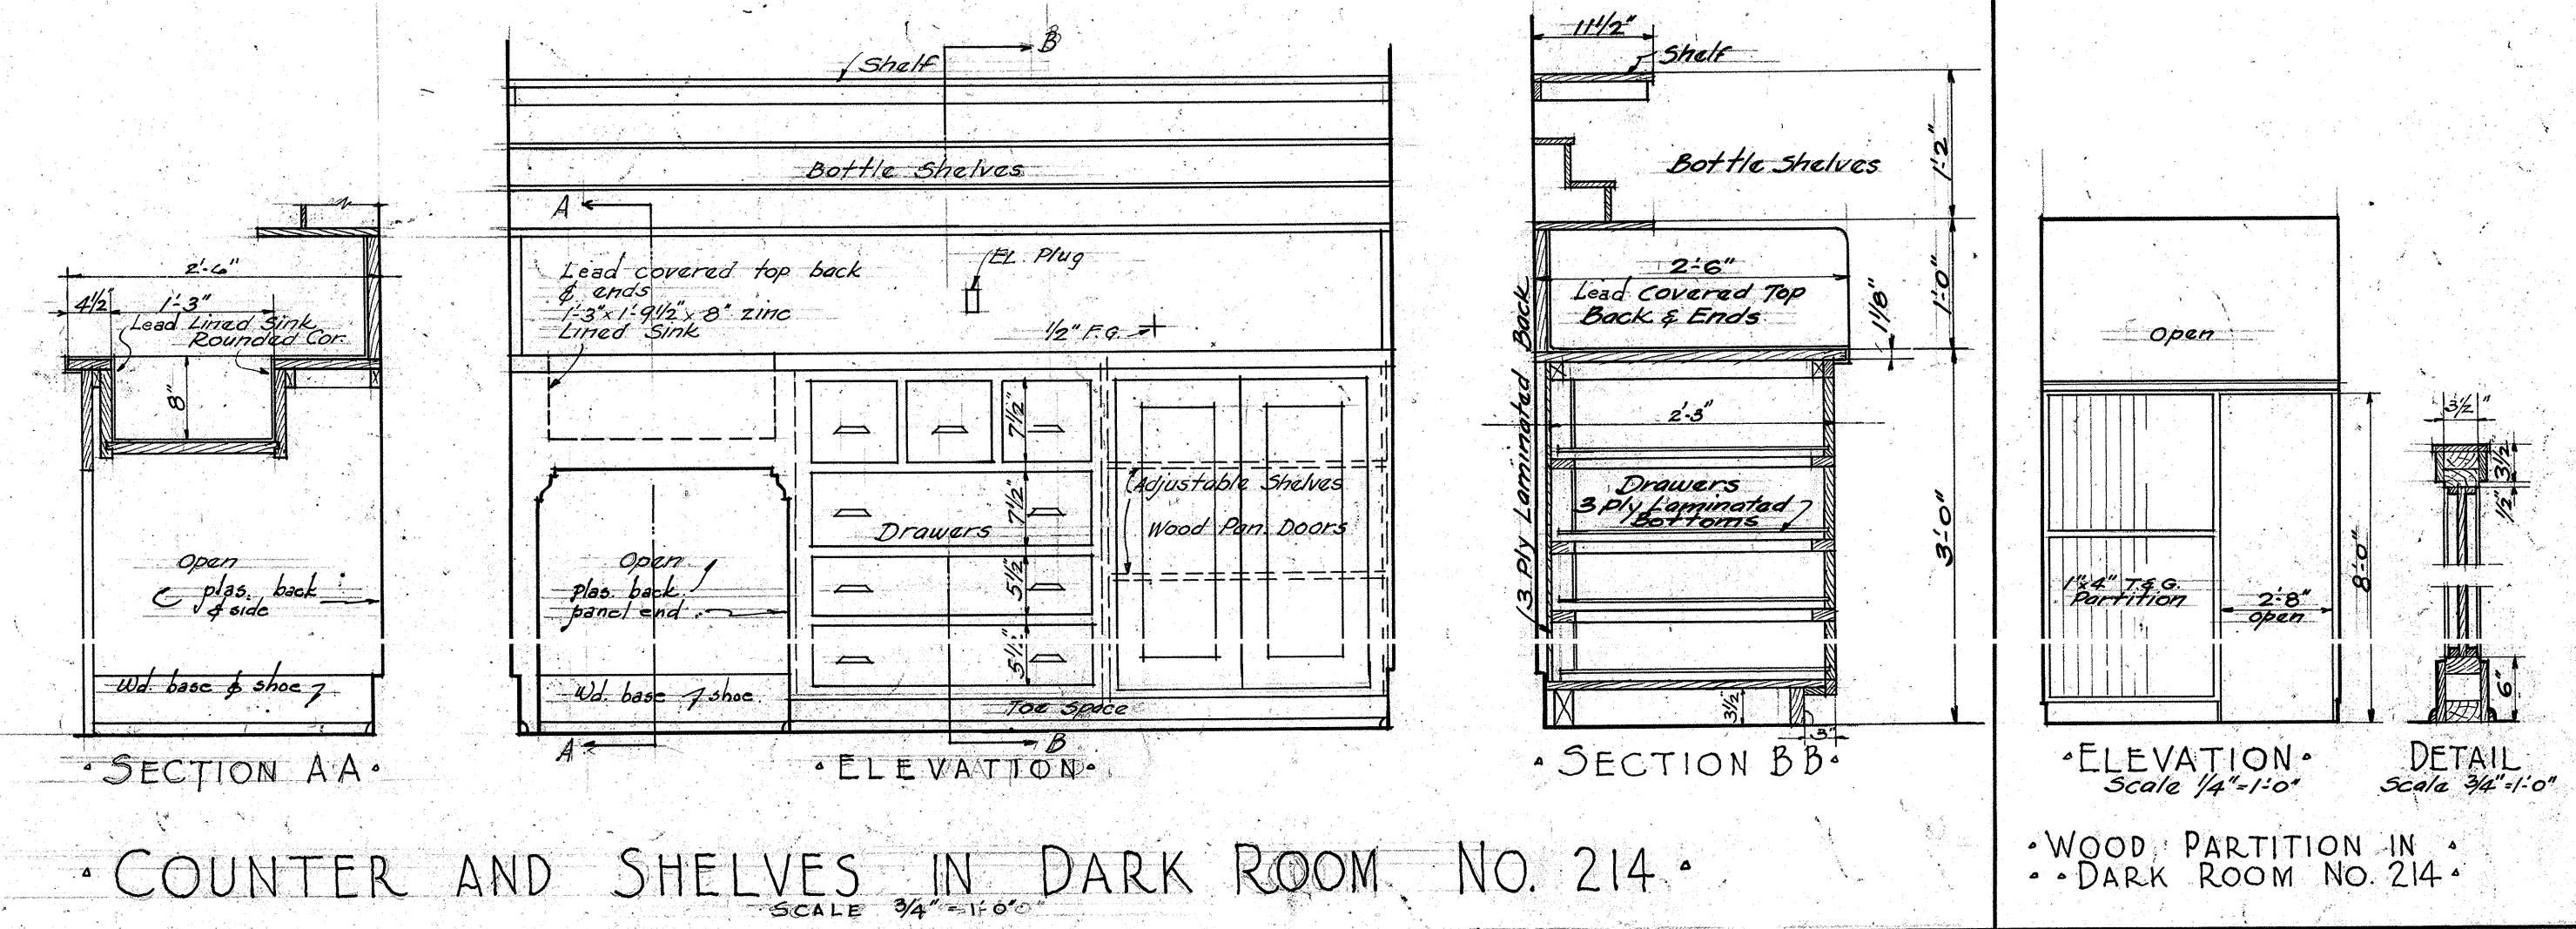 2'-6"
4 1/2"
1'-3"
Lead Lined Sink
Rounded Cor.
8"
Open
plas. back
& side
Wd. base & shoe
• SECTION AA •
Shelf
B
Bottle Shelves
A
Lead covered top back
& ends
1'-3" x 1'-9 1/2" x 8" zinc
Lined Sink
El. Plug
1/2" F.G.
7 1/2"
7 1/2"
5 1/2"
5 1/2"
Drawers
Adjustable Shelves
Wood Pan. Doors
Open
plas. back
panel end
Wd. base & shoe
Toe Space
A
B
• ELEVATION •
11 1/2"
Shelf
Bottle Shelves
1'-2"
2'-6"
Lead Covered Top
Back & Ends
1 1/8"
1'-0"
3 Ply Laminated Back
2'-3"
Drawers
3 Ply Laminated
Bottoms
3'-0"
3 1/2"
3"
• SECTION BB •
Open
1"x4" T.&G.
Partition
2'-8"
open
8'-0"
• ELEVATION •
Scale 1/4"=1'-0"
3 1/2"
3 1/2"
1/2"
6"
DETAIL
Scale 3/4"=1'-0"
• COUNTER AND SHELVES IN DARK ROOM NO. 214 •
SCALE 3/4" = 1'-0"
• WOOD PARTITION IN •
• • DARK ROOM NO. 214 •